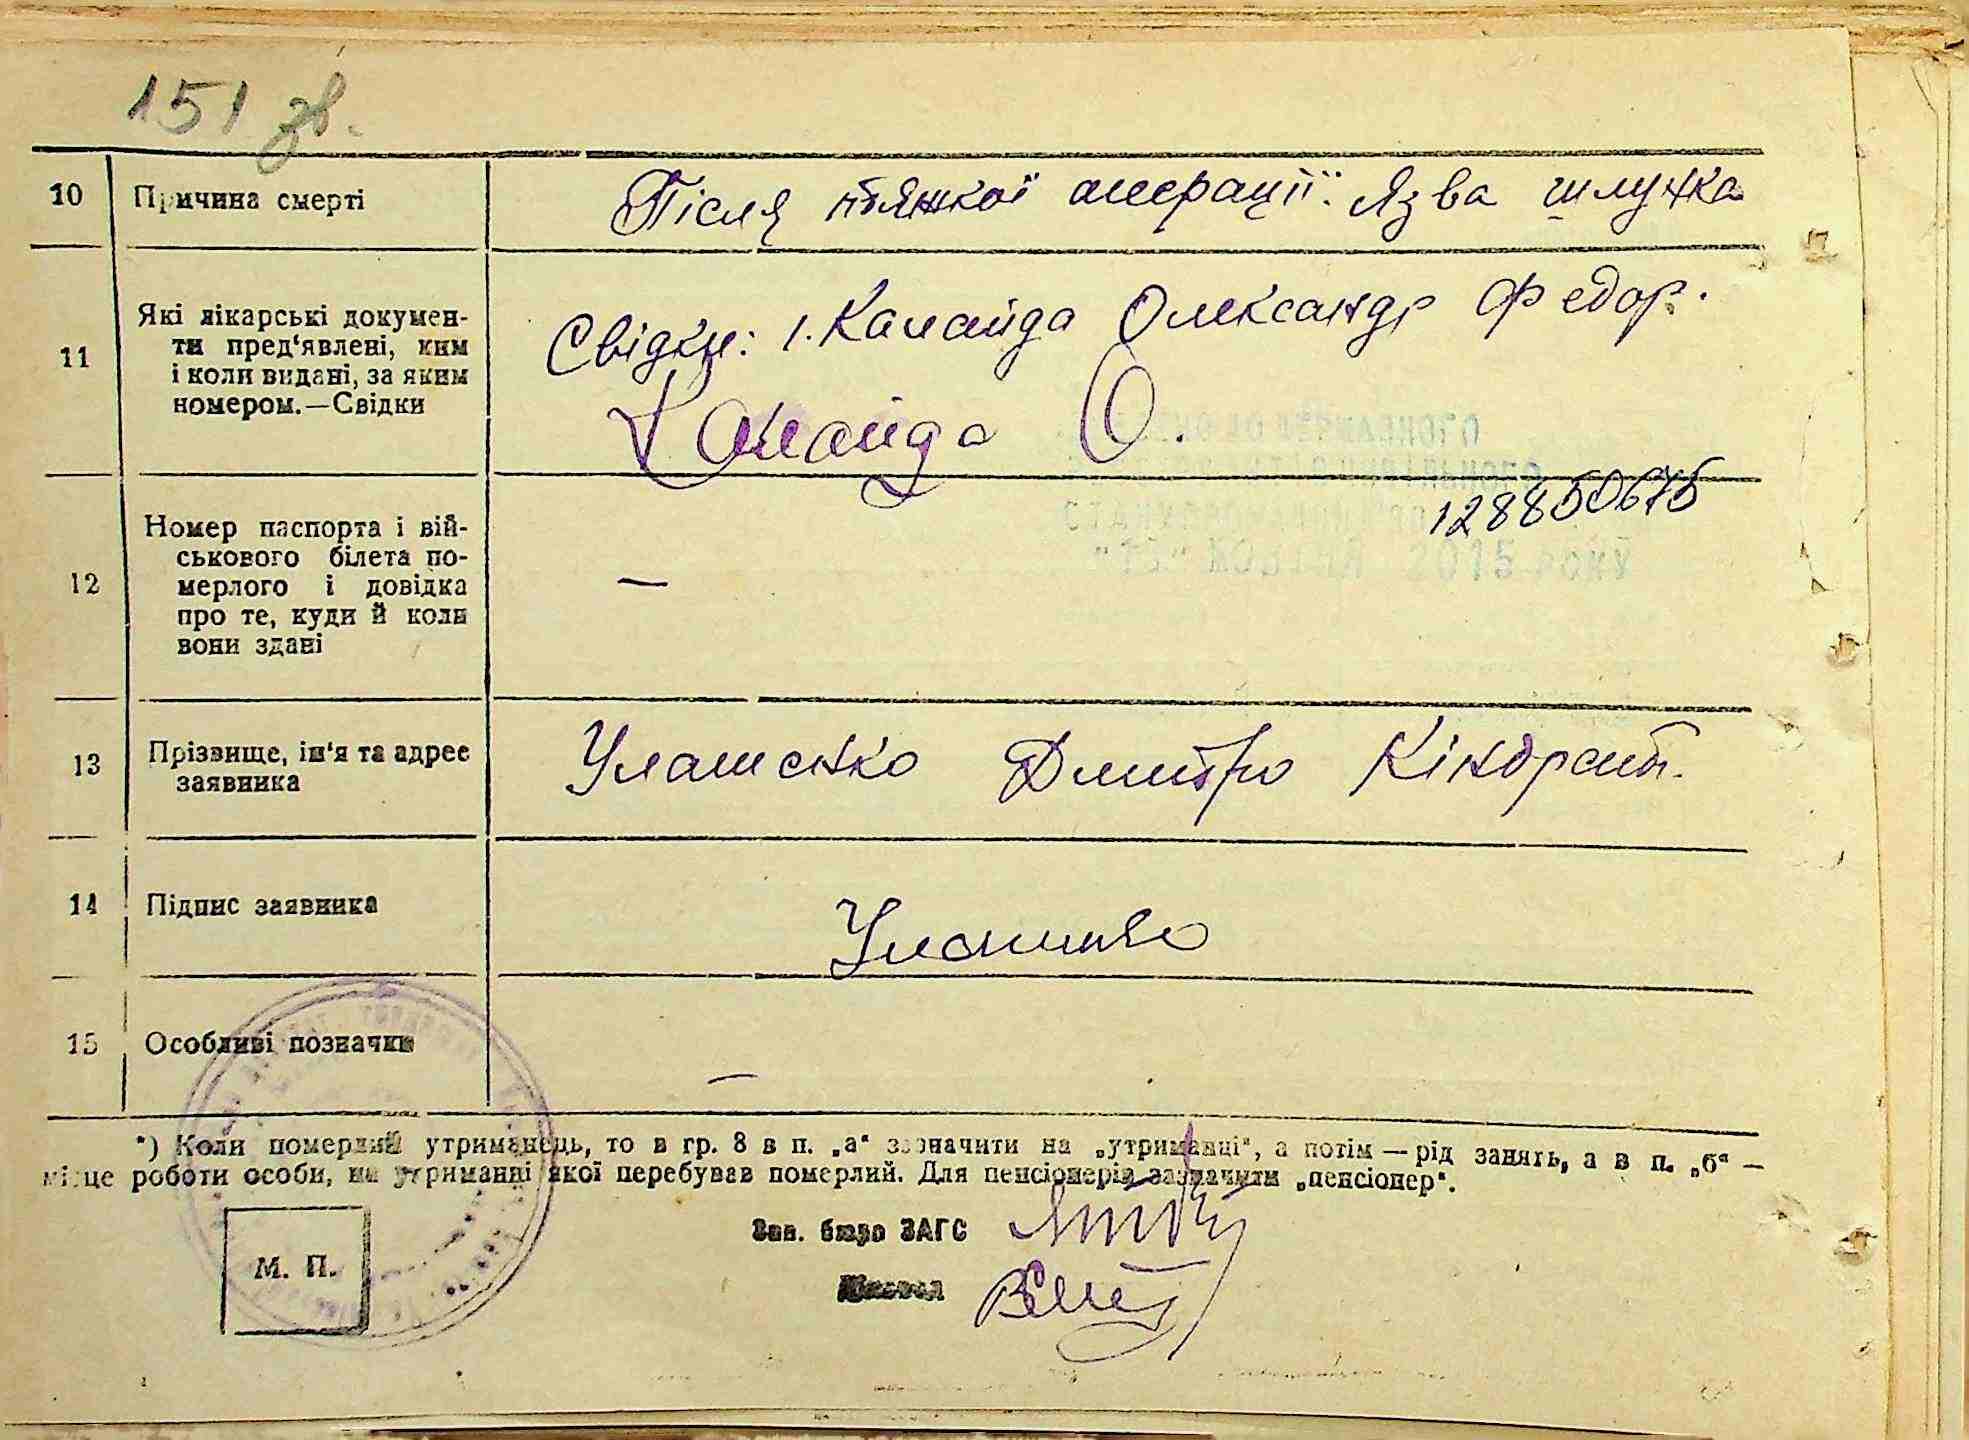 151 зв.
10 Причина смерті Після тяжкої операції. Язва шлунка
11 Які лікарські докумен-
ти пред‘явлені, ким
і коли видані, за яким
номером.—Свідки
Свідки: 1. Каланда Олександр Федор.
О.
12 Номер паспорта і вій-
ськового білета по-
мерлого і довідка
про те, куди й коли
вони здані
—
128850675
ДЕРЖАВНОГО
2015 РОКУ
13 Прізвище, ім‘я та адрес
заявника
Улашенко Дмитро Кіндрат.
14 Підпис заявника
15 Особливі позначки —
*) Коли померлий утриманець, то в гр. 8 в п. „а“ зазначити на „утриманці“, а потім — рід занять, а в п. „б“ —
місце роботи особи, на утриманні якої перебував померлий. Для пенсіонерів зазначити „пенсіонер“.
Зав. бюро ЗАГС
М. П.